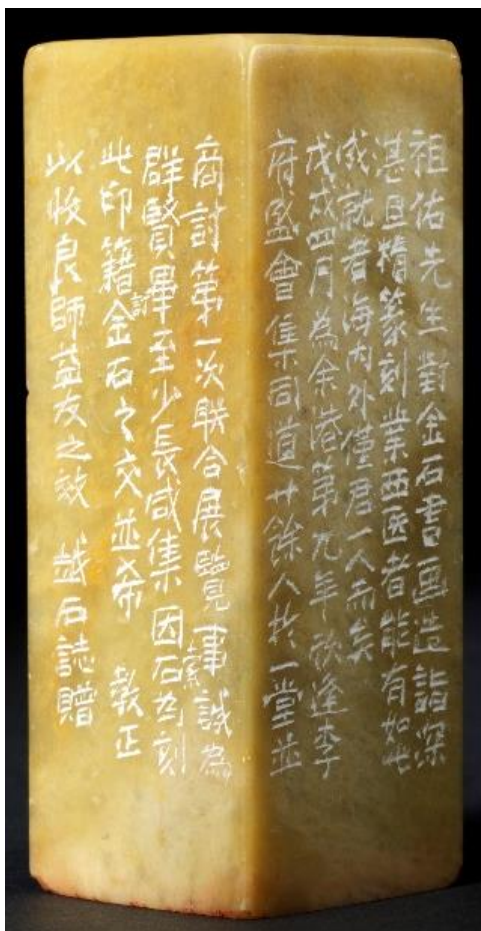 祖佑先生對金石書画造詣深
甚且精篆刻業西医者能有如此
成就者海内外僅君一人而矣
戊戌四月為余港第九年欣逢李
府盛會集同道廿餘人於一堂並
商討第一次聯合展覽事誠為
群賢畢至少長咸集因石为刻
此印籍金石之交並希 教正
以收良師益友之效 越石誌贈